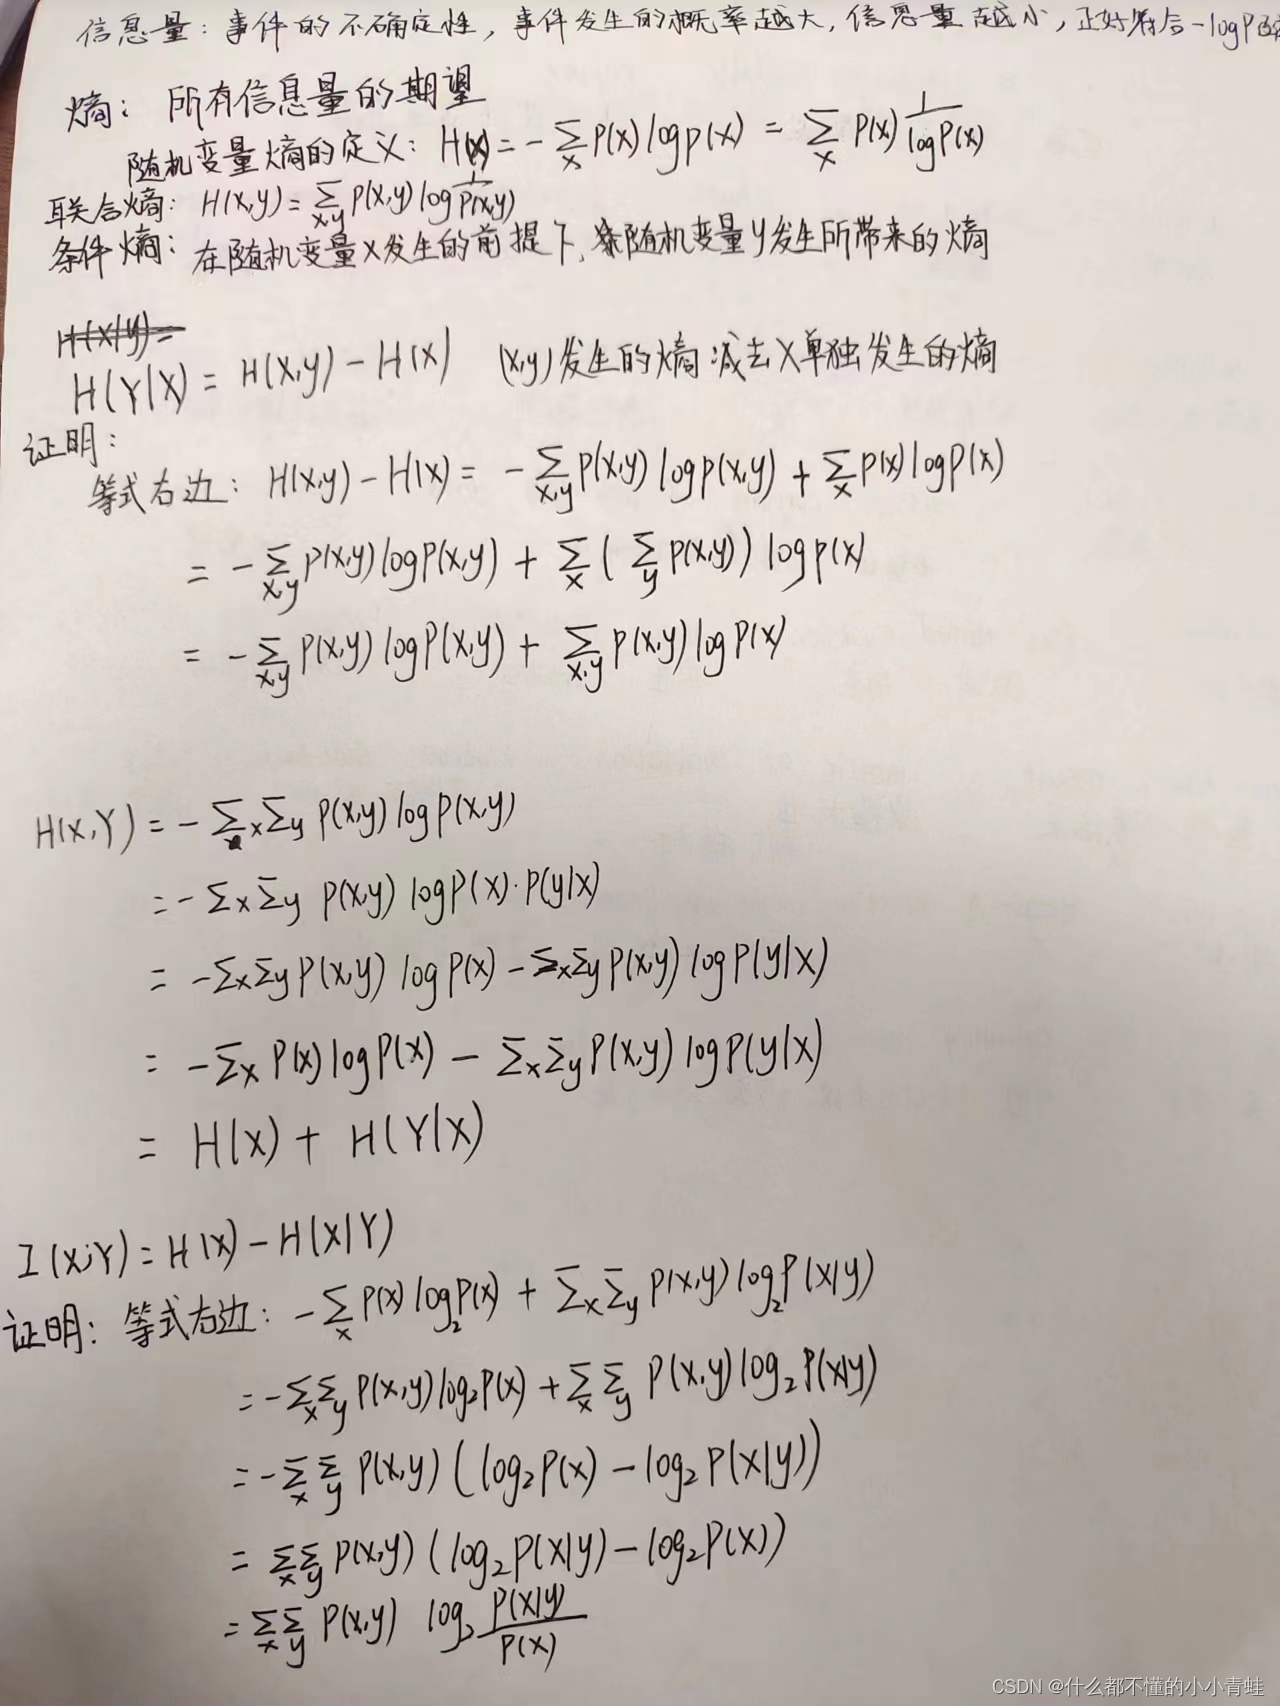 信息量：事件的不确定性，事件发生的概率越大，信息量越小，正好符合-logP
熵：所有信息量的期望
随机变量熵的定义：H(X)=-∑_x P(x)logp(x) = ∑_x P(x) 1/logP(x)
联合熵：H(x,y)=∑_{x,y} P(x,y)log 1/P(x,y)
条件熵：在随机变量X发生的前提下，随机变量y发生所带来的熵
H(X|y)=
H(Y|X) = H(X,y)-H(X) (x,y)发生的熵减去X单独发生的熵
证明：
等式右边：H(X,y)-H(X)= -∑_{x,y} P(x,y)logp(x,y)+∑_x P(x)logP(x)
= -∑_{x,y} P(x,y)logP(x,y) + ∑_x (∑_y P(x,y)) logp(x)
= -∑_{x,y} P(x,y)logP(x,y) + ∑_{x,y} P(x,y)logP(x)
H(X,Y) = -∑x∑y P(x,y)logP(x,y)
= -∑x∑y P(x,y) logP(x)·P(y|x)
= -∑x∑y P(x,y) logP(x) - ∑x∑y P(x,y) logP(y|x)
= -∑x P(x)logP(x) - ∑x∑y P(x,y)logP(y|x)
= H(X) + H(Y|X)
I(X;Y)=H(X)-H(X|Y)
证明：等式右边：-∑_x P(x)log₂P(x) + ∑x∑y P(x,y)log₂P(x|y)
= -∑_x∑_y P(x,y)log₂P(x)+∑_x∑_y P(x,y)log₂P(x|y)
= -∑_x∑_y P(x,y)(log₂P(x)-log₂P(x|y))
= ∑_x∑_y P(x,y)(log₂P(x|y)-log₂P(x))
= ∑_x∑_y P(x,y) log₂ P(x|y)/P(x)
CSDN @什么都不懂的小小青蛙